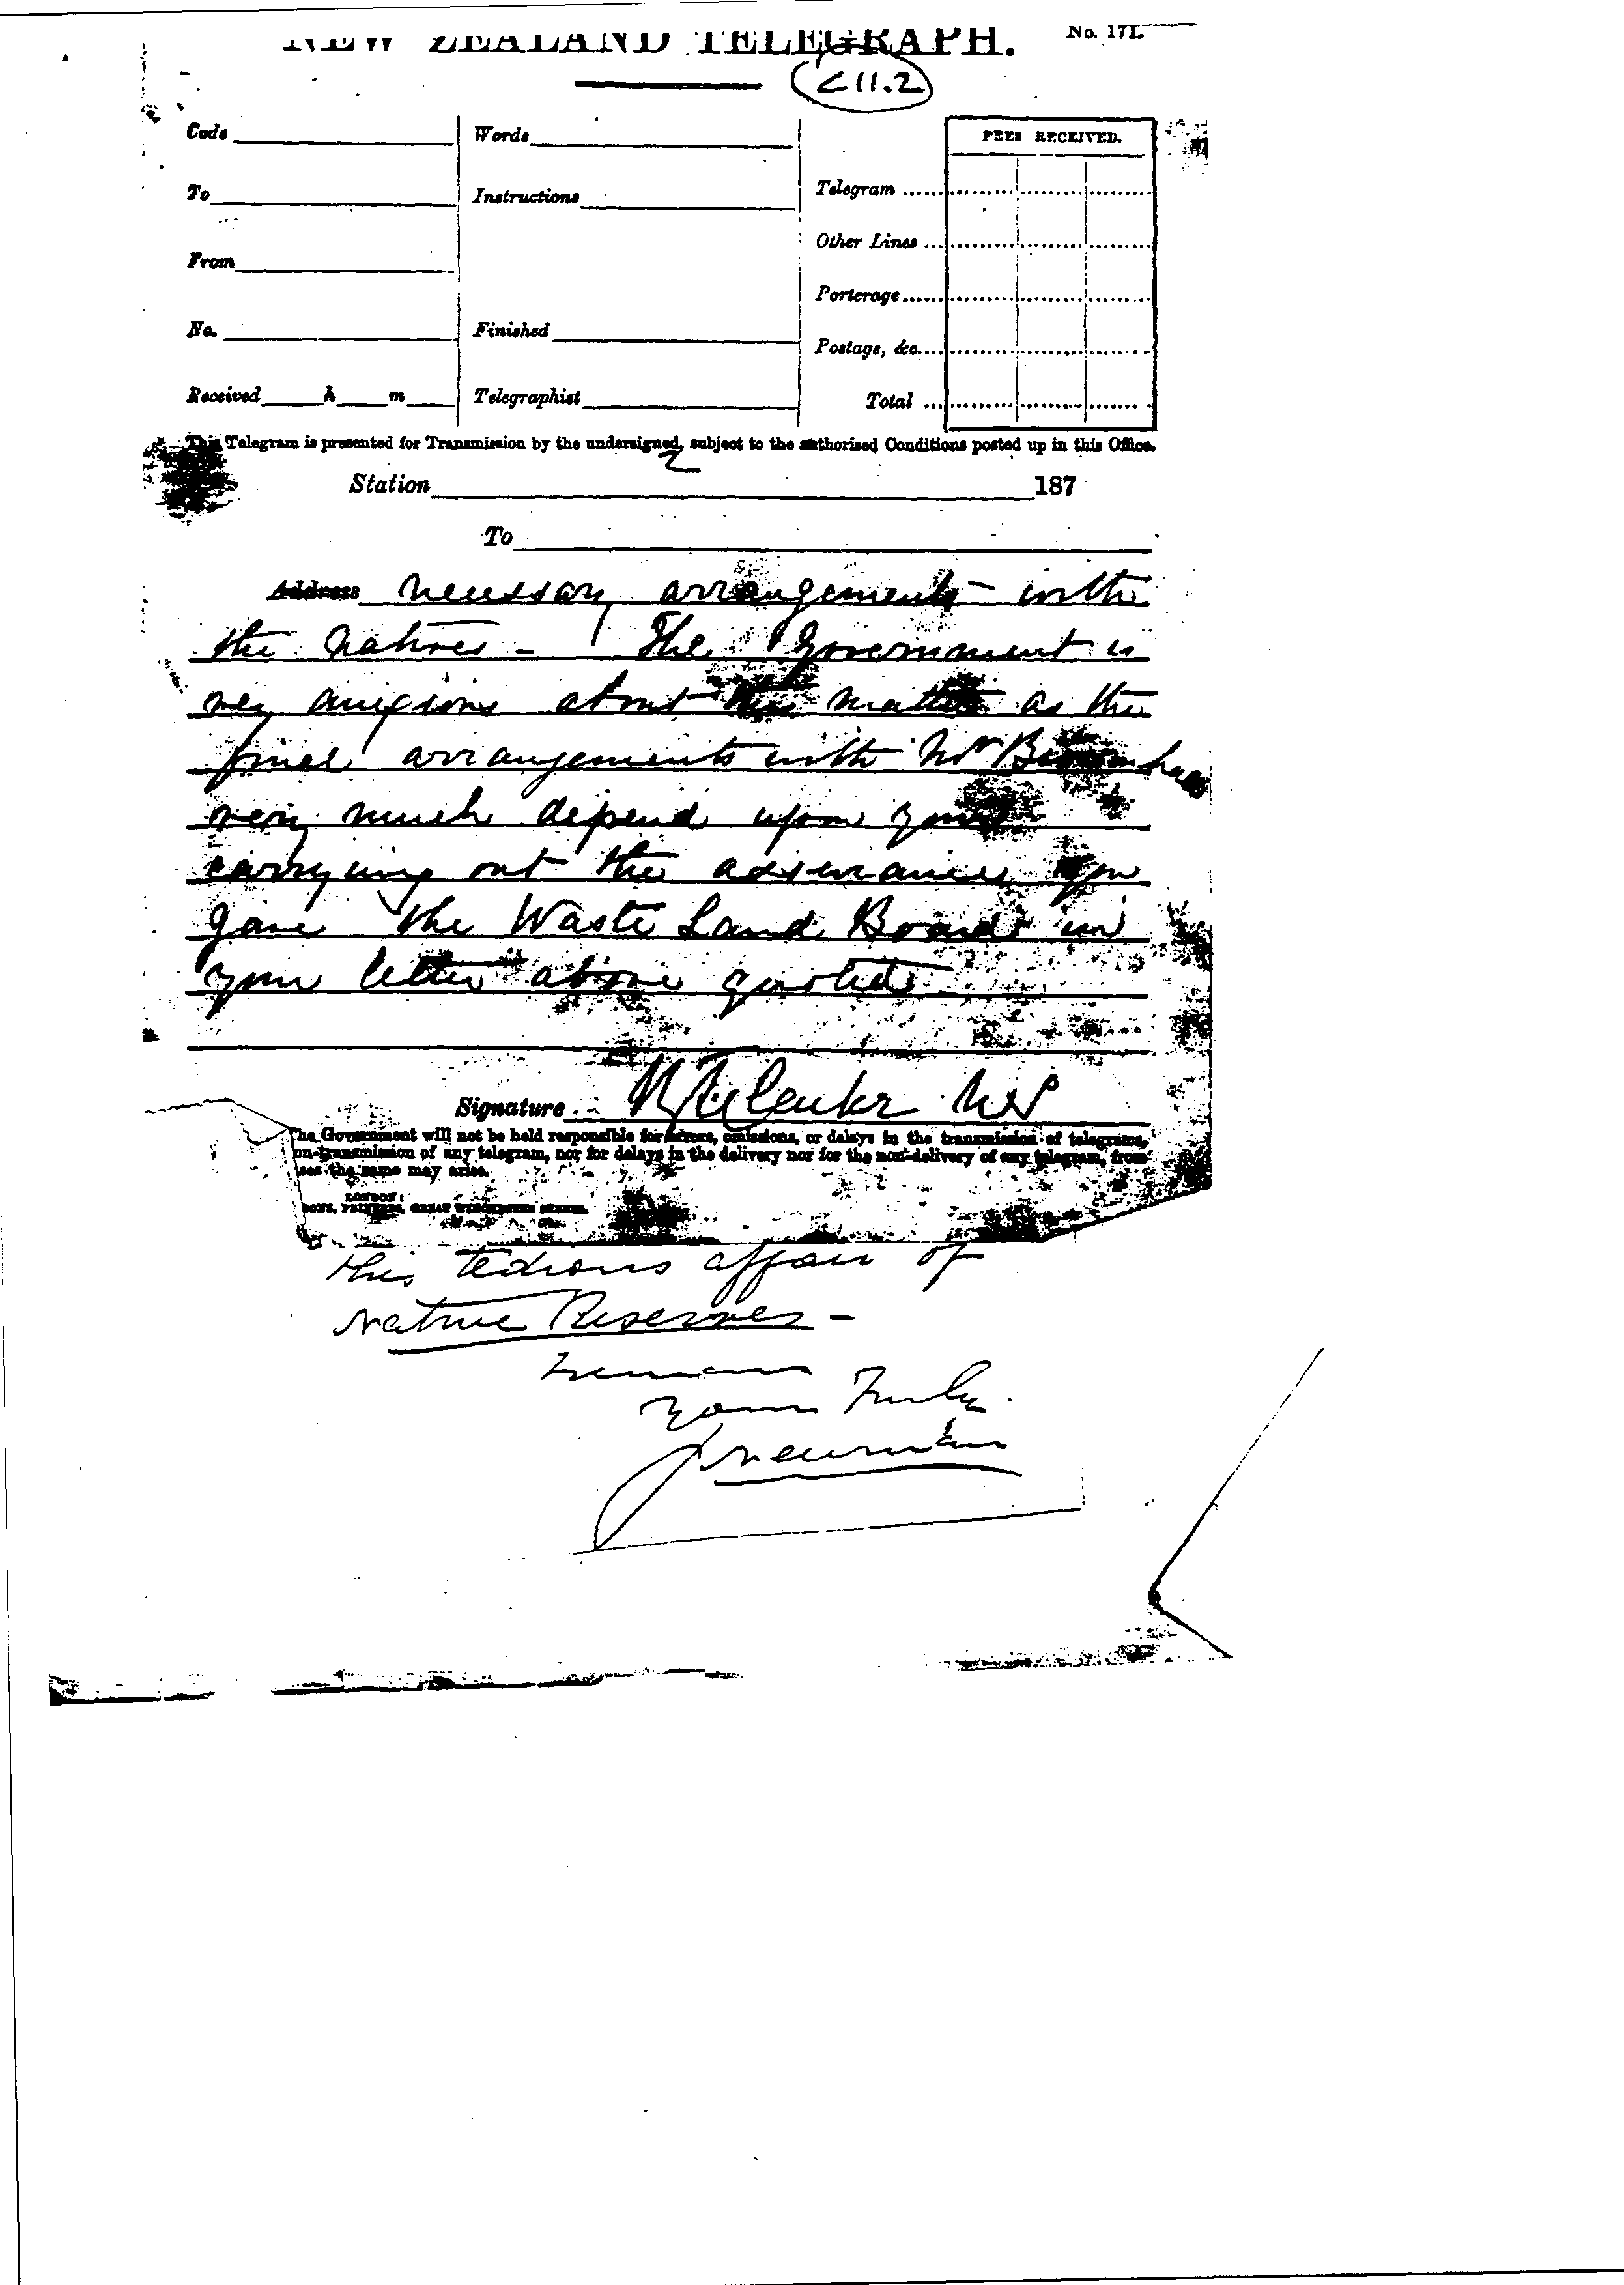 NEW ZEALAND TELEGRAPH.
No. 171.
C 11.2
Code
Words
FEES RECEIVED.
To
Instructions
Telegram
Other Lines
From
Porterage
No.
Finished
Postage, &c.
Received h m
Telegraphist
Total
This Telegram is presented for Transmission by the undersigned, subject to the authorised Conditions posted up in this Office.
2
Station 187
To
Address necessary arrangements with
the Natives - The Government is
very anxious about this matter as the
final arrangements with Mr
very much depend upon your
carrying out the assurance you
gave the Waste Land Board in
your letter above quoted
Signature
The Government will not be held responsible for errors, omissions, or delays in the transmission of telegrams,
on-transmission of any telegram, nor for delays in the delivery nor for the non-delivery of any telegram, from
the same may arise.
LONDON:
GREAT WINCHESTER STREET.
this tedious affair of
Native Reserves -
remain
Yours Truly.